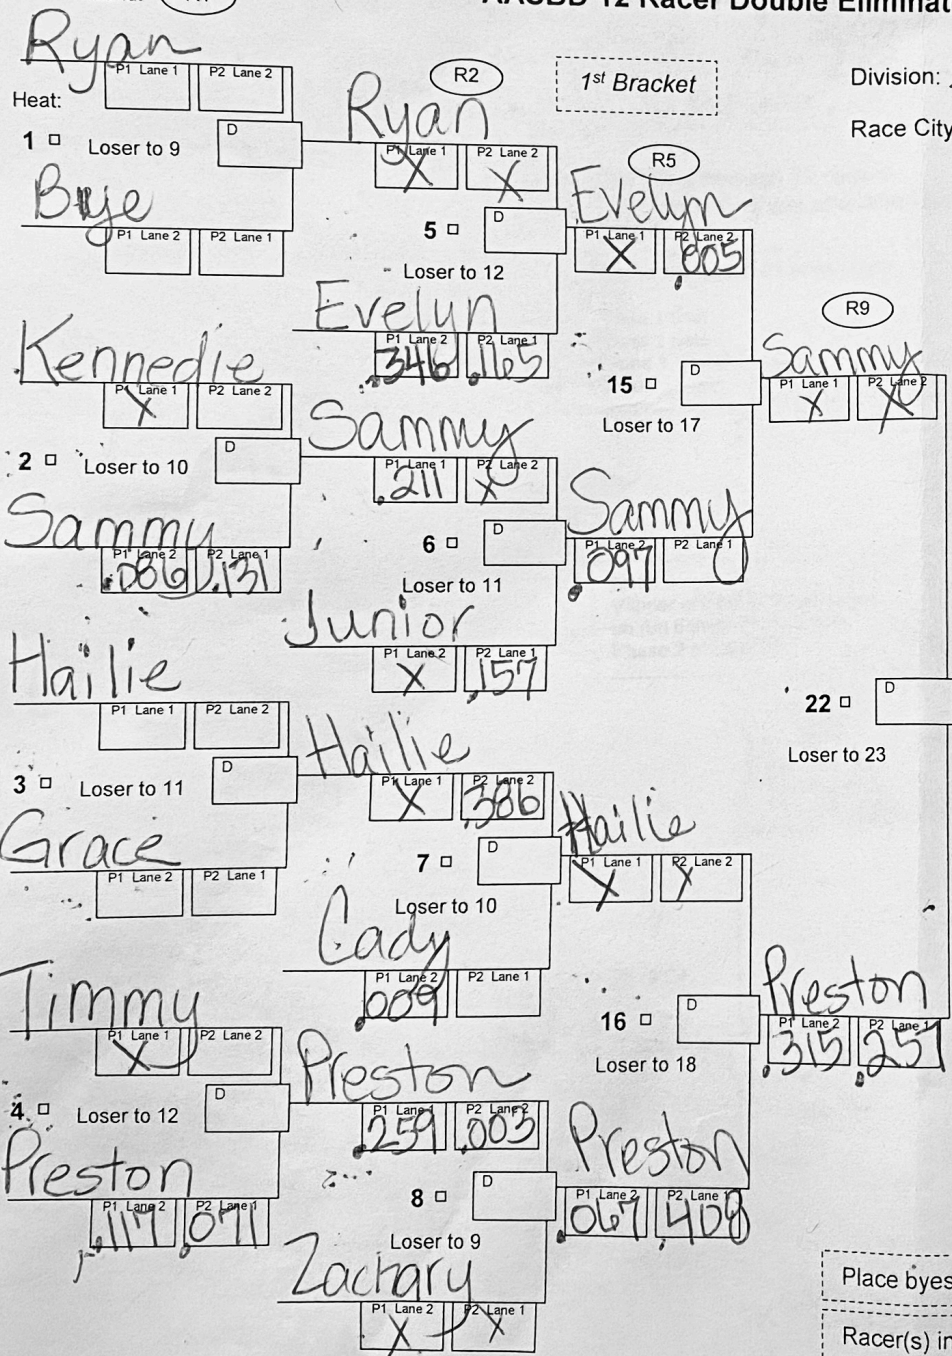 AASBD 12 Racer Double Eliminat
Ryan
P1 Lane 1 P2 Lane 2
Heat:
1 Loser to 9
D
Bye
P1 Lane 2 P2 Lane 1
Kennedie
P1 Lane 1 P2 Lane 2
X
2 Loser to 10
D
Sammy
P1 Lane 2 P2 Lane 1
.086 .131
Hailie
P1 Lane 1 P2 Lane 2
3 Loser to 11
D
Grace
P1 Lane 2 P2 Lane 1
Timmy
P1 Lane 1 P2 Lane 2
X
4 Loser to 12
D
Preston
P1 Lane 2 P2 Lane 1
.117 .071
R2
Ryan
P1 Lane 1 P2 Lane 2
X X
5
D
Loser to 12
Evelyn
P1 Lane 2 P2 Lane 1
.346 .165
Sammy
P1 Lane 1 P2 Lane 2
.211 X
6
D
Loser to 11
Junior
P1 Lane 2 P2 Lane 1
X .157
Hailie
P1 Lane 1 P2 Lane 2
X .386
7
D
Loser to 10
Cady
P1 Lane 2 P2 Lane 1
.009
Preston
P1 Lane 1 P2 Lane 2
.259 .003
8
D
Loser to 9
Zachary
P1 Lane 2 P2 Lane 1
X X
1st Bracket
R5
Evelyn
P1 Lane 1 P2 Lane 2
X .005
15
D
Loser to 17
Sammy
P1 Lane 2 P2 Lane 1
.097
Hailie
P1 Lane 1 P2 Lane 2
X X
16
D
Loser to 18
Preston
P1 Lane 2 P2 Lane 1
.067 .408
Division:
Race City
R9
Sammy
P1 Lane 1 P2 Lane 2
X X
22
D
Loser to 23
Preston
P1 Lane 2 P2 Lane 1
.315 .257
Place byes
Racer(s) in